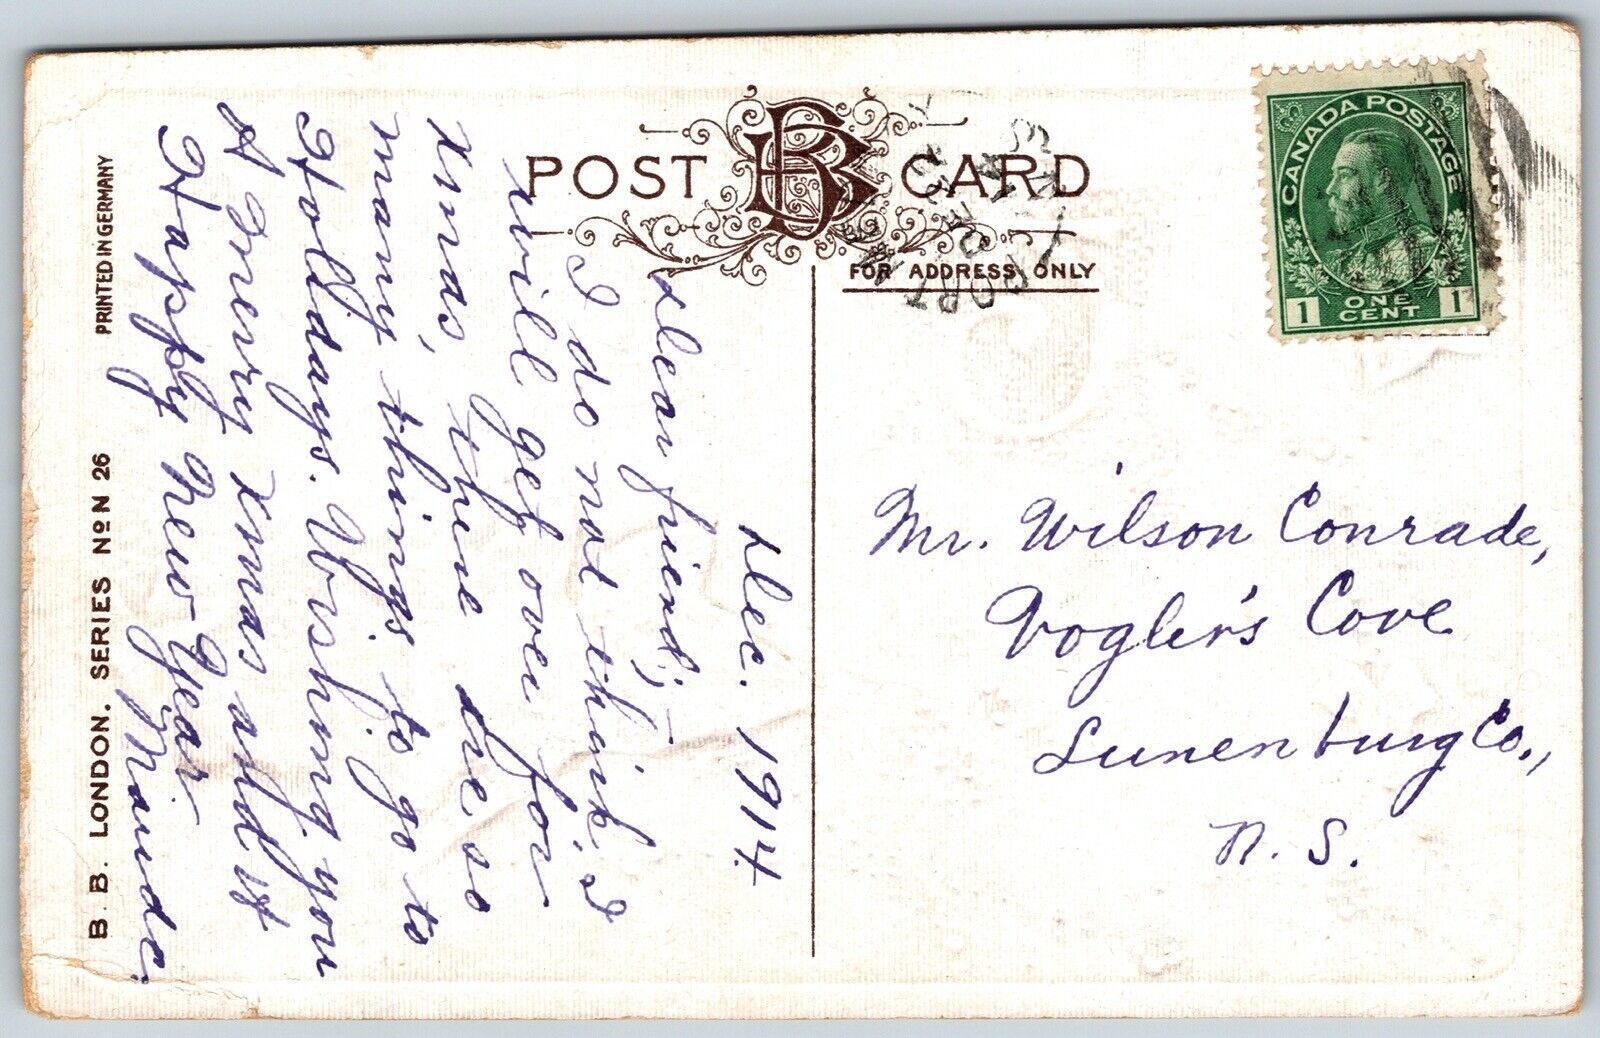 POST CARD
FOR ADDRESS ONLY
CANADA POSTAGE
1 ONE CENT 1
PORT
N.S.
Dec. 1914
Dear friend;—
I do not think I
will get over for
Xmas, there are so
many things to go to
Holldays. Wishing you
A Merry Xmas and a
Happy New Year
Maude.
Mr. Wilson Conrade,
Vogler's Cove
Lunenburg Co.,
N. S.
B. B. LONDON. SERIES No N 26 PRINTED IN GERMANY